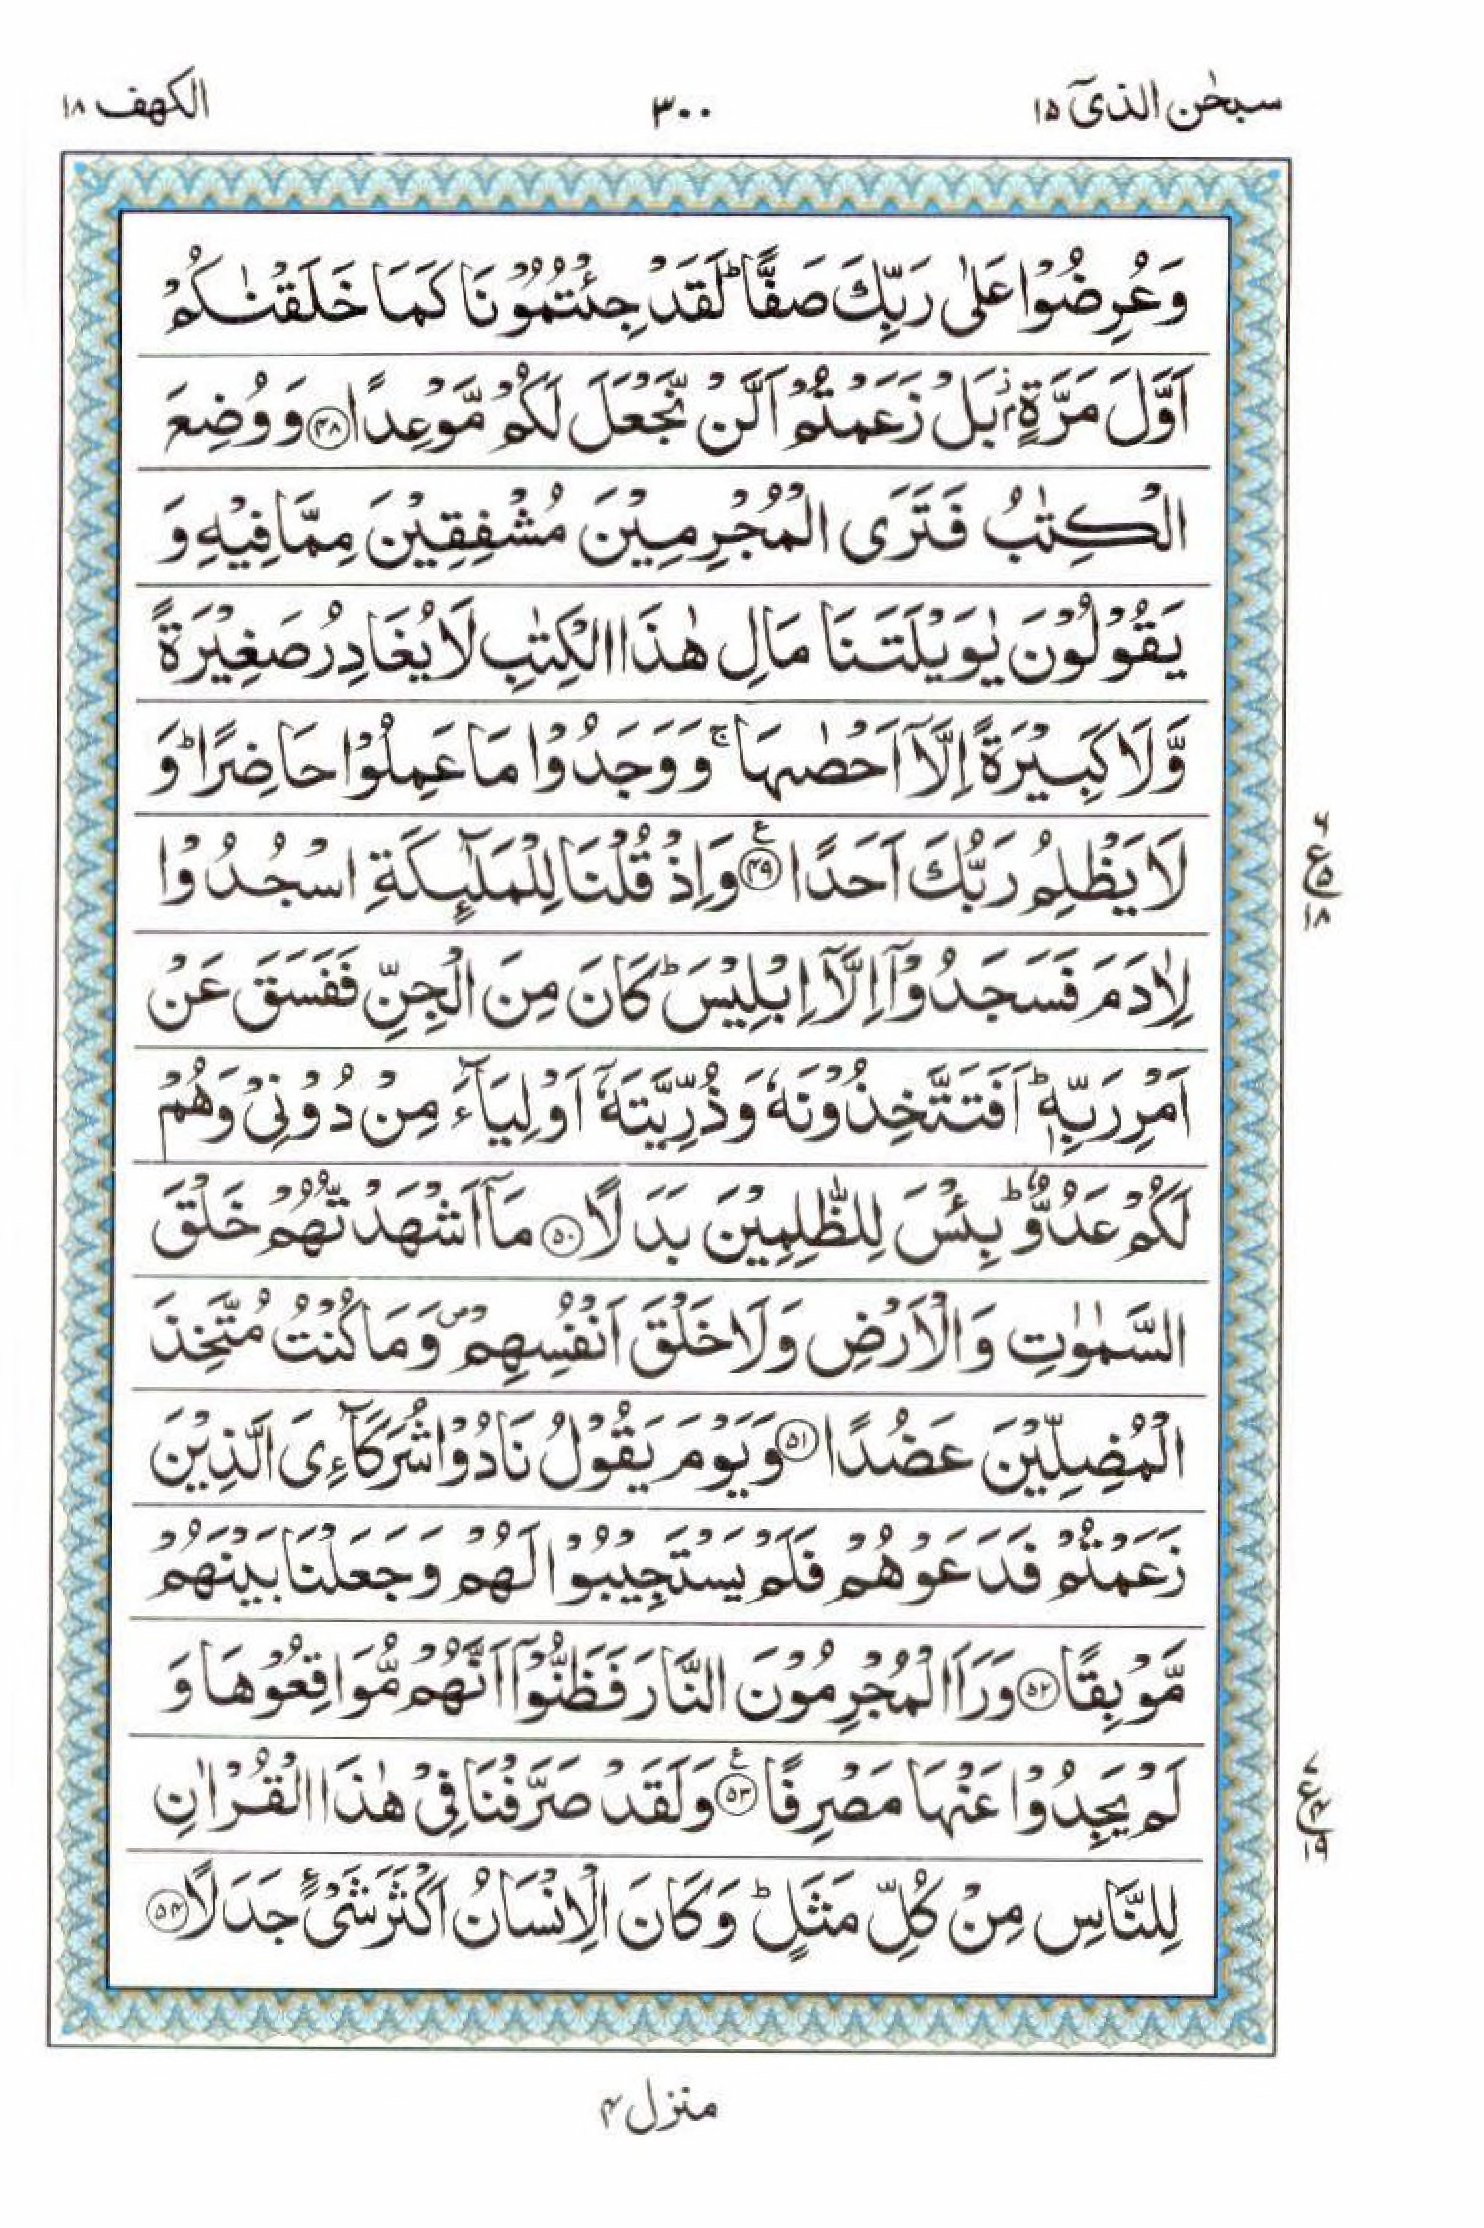 سبحٰن الذیٓ ١٥
٣٠٠
الكهف ١٨
وَعُرِضُوْا عَلٰى رَبِّكَ صَفًّا ؕ لَقَدْ جِئْتُمُوْنَا كَمَا خَلَقْنٰكُمْ
اَوَّلَ مَرَّةٍۭ ؗ بَلْ زَعَمْتُمْ اَلَّنْ نَّجْعَلَ لَكُمْ مَّوْعِدًا ﴿۴۸﴾ وَوُضِعَ
الْكِتٰبُ فَتَرَى الْمُجْرِمِيْنَ مُشْفِقِيْنَ مِمَّا فِيْهِ وَ
يَقُوْلُوْنَ يٰوَيْلَتَنَا مَالِ هٰذَا الْكِتٰبِ لَا يُغَادِرُ صَغِيْرَةً
وَّلَا كَبِيْرَةً اِلَّاۤ اَحْصٰىهَا ۚ وَوَجَدُوْا مَا عَمِلُوْا حَاضِرًا ؕ وَ
لَا يَظْلِمُ رَبُّكَ اَحَدًا ﴿۴۹﴾ ع وَاِذْ قُلْنَا لِلْمَلٰٓئِكَةِ اسْجُدُوْا
۶ ع ۵ ۱۸
لِاٰدَمَ فَسَجَدُوْۤا اِلَّاۤ اِبْلِيْسَ ؕ كَانَ مِنَ الْجِنِّ فَفَسَقَ عَنْ
اَمْرِ رَبِّهٖ ؕ اَفَتَتَّخِذُوْنَهٗ وَذُرِّيَّتَهٗۤ اَوْلِيَآءَ مِنْ دُوْنِيْ وَهُمْ
لَكُمْ عَدُوٌّ ؕ بِئْسَ لِلظّٰلِمِيْنَ بَدَلًا ﴿۵۰﴾ مَاۤ اَشْهَدْتُّهُمْ خَلْقَ
السَّمٰوٰتِ وَالْاَرْضِ وَلَا خَلْقَ اَنْفُسِهِمْ ۪ وَمَا كُنْتُ مُتَّخِذَ
الْمُضِلِّيْنَ عَضُدًا ﴿۵۱﴾ وَيَوْمَ يَقُوْلُ نَادُوْا شُرَكَآءِيَ الَّذِيْنَ
زَعَمْتُمْ فَدَعَوْهُمْ فَلَمْ يَسْتَجِيْبُوْا لَهُمْ وَجَعَلْنَا بَيْنَهُمْ
مَّوْبِقًا ﴿۵۲﴾ وَرَاَ الْمُجْرِمُوْنَ النَّارَ فَظَنُّوْۤا اَنَّهُمْ مُّوَاقِعُوْهَا وَ
لَمْ يَجِدُوْا عَنْهَا مَصْرِفًا ﴿۵۳﴾ ع وَلَقَدْ صَرَّفْنَا فِيْ هٰذَا الْقُرْاٰنِ
۷ ع ۴ ۱۹
لِلنَّاسِ مِنْ كُلِّ مَثَلٍ ؕ وَكَانَ الْاِنْسَانُ اَكْثَرَ شَيْءٍ جَدَلًا ﴿۵۴﴾
منزل ۴